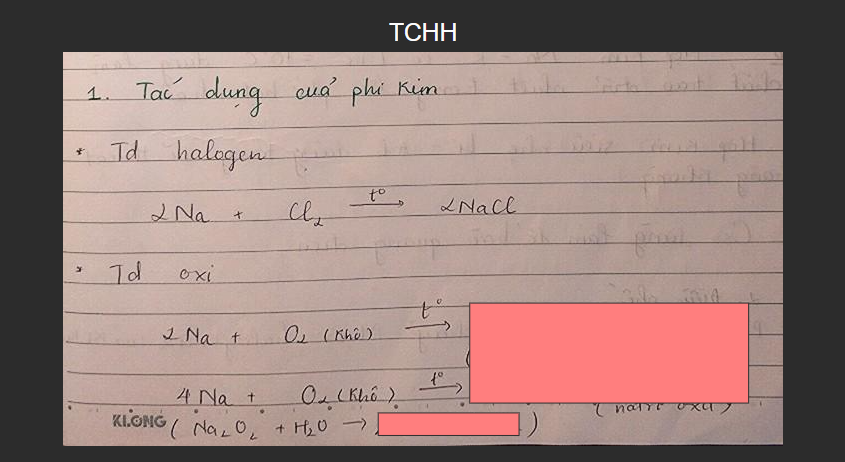 TCHH
1. Tác dụng cuả phi kim
* Td halogen
2Na + Cl₂ t° → 2NaCl
* Td oxi
2Na + O₂ (khô) t° →
4Na + O₂ (khô) t° →
(natri oxit)
KLONG ( Na₂O₂ + H₂O → )